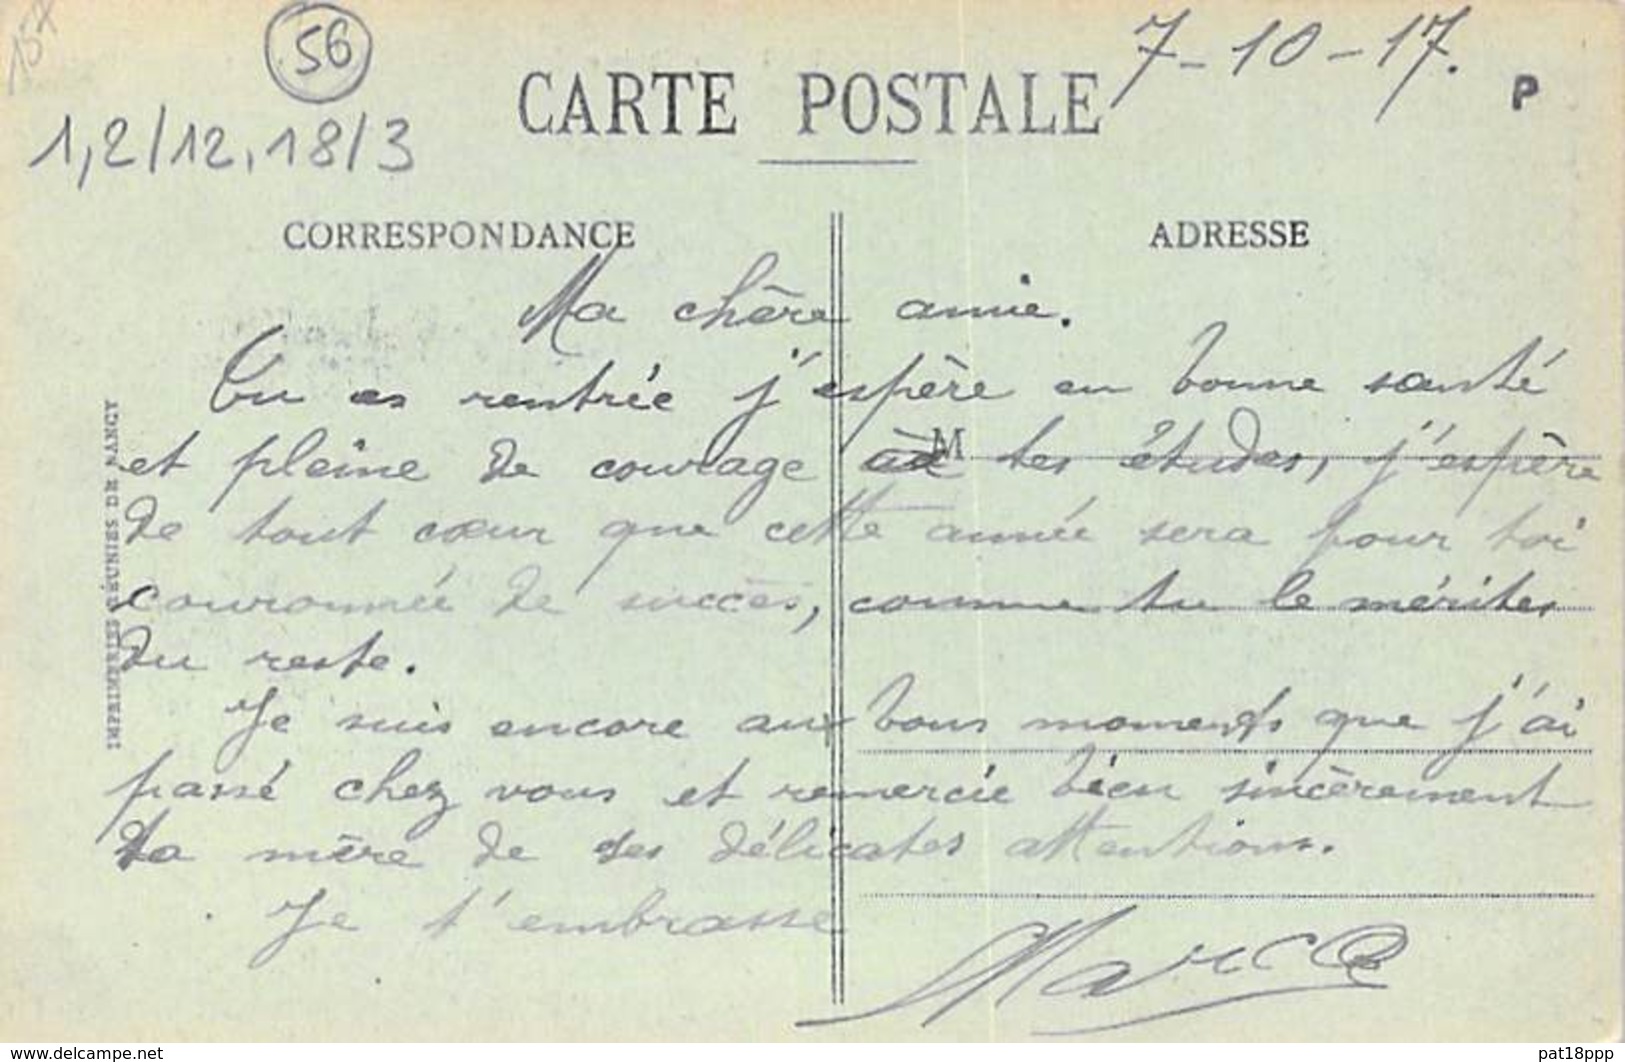 15x
56
7-10-17.
CARTE POSTALE
P
1,2/12,18/3
CORRESPONDANCE
ADRESSE
Ma chère amie.
Tu es rentrée j'espère en bonne santé
et pleine de courage à tes études, j'espère
M
de tout cœur que cette année sera pour toi
couronnée de succès, comme tu le mérites
du reste.
Je suis encore aux bons moments que j'ai
passé chez vous et remercie bien sincèrement
ta mère de ses délicates attentions.
Je t'embrasse
Marcel
IMPRIMERIES RÉUNIES DE NANCY
www.delcampe.net
pat18ppp